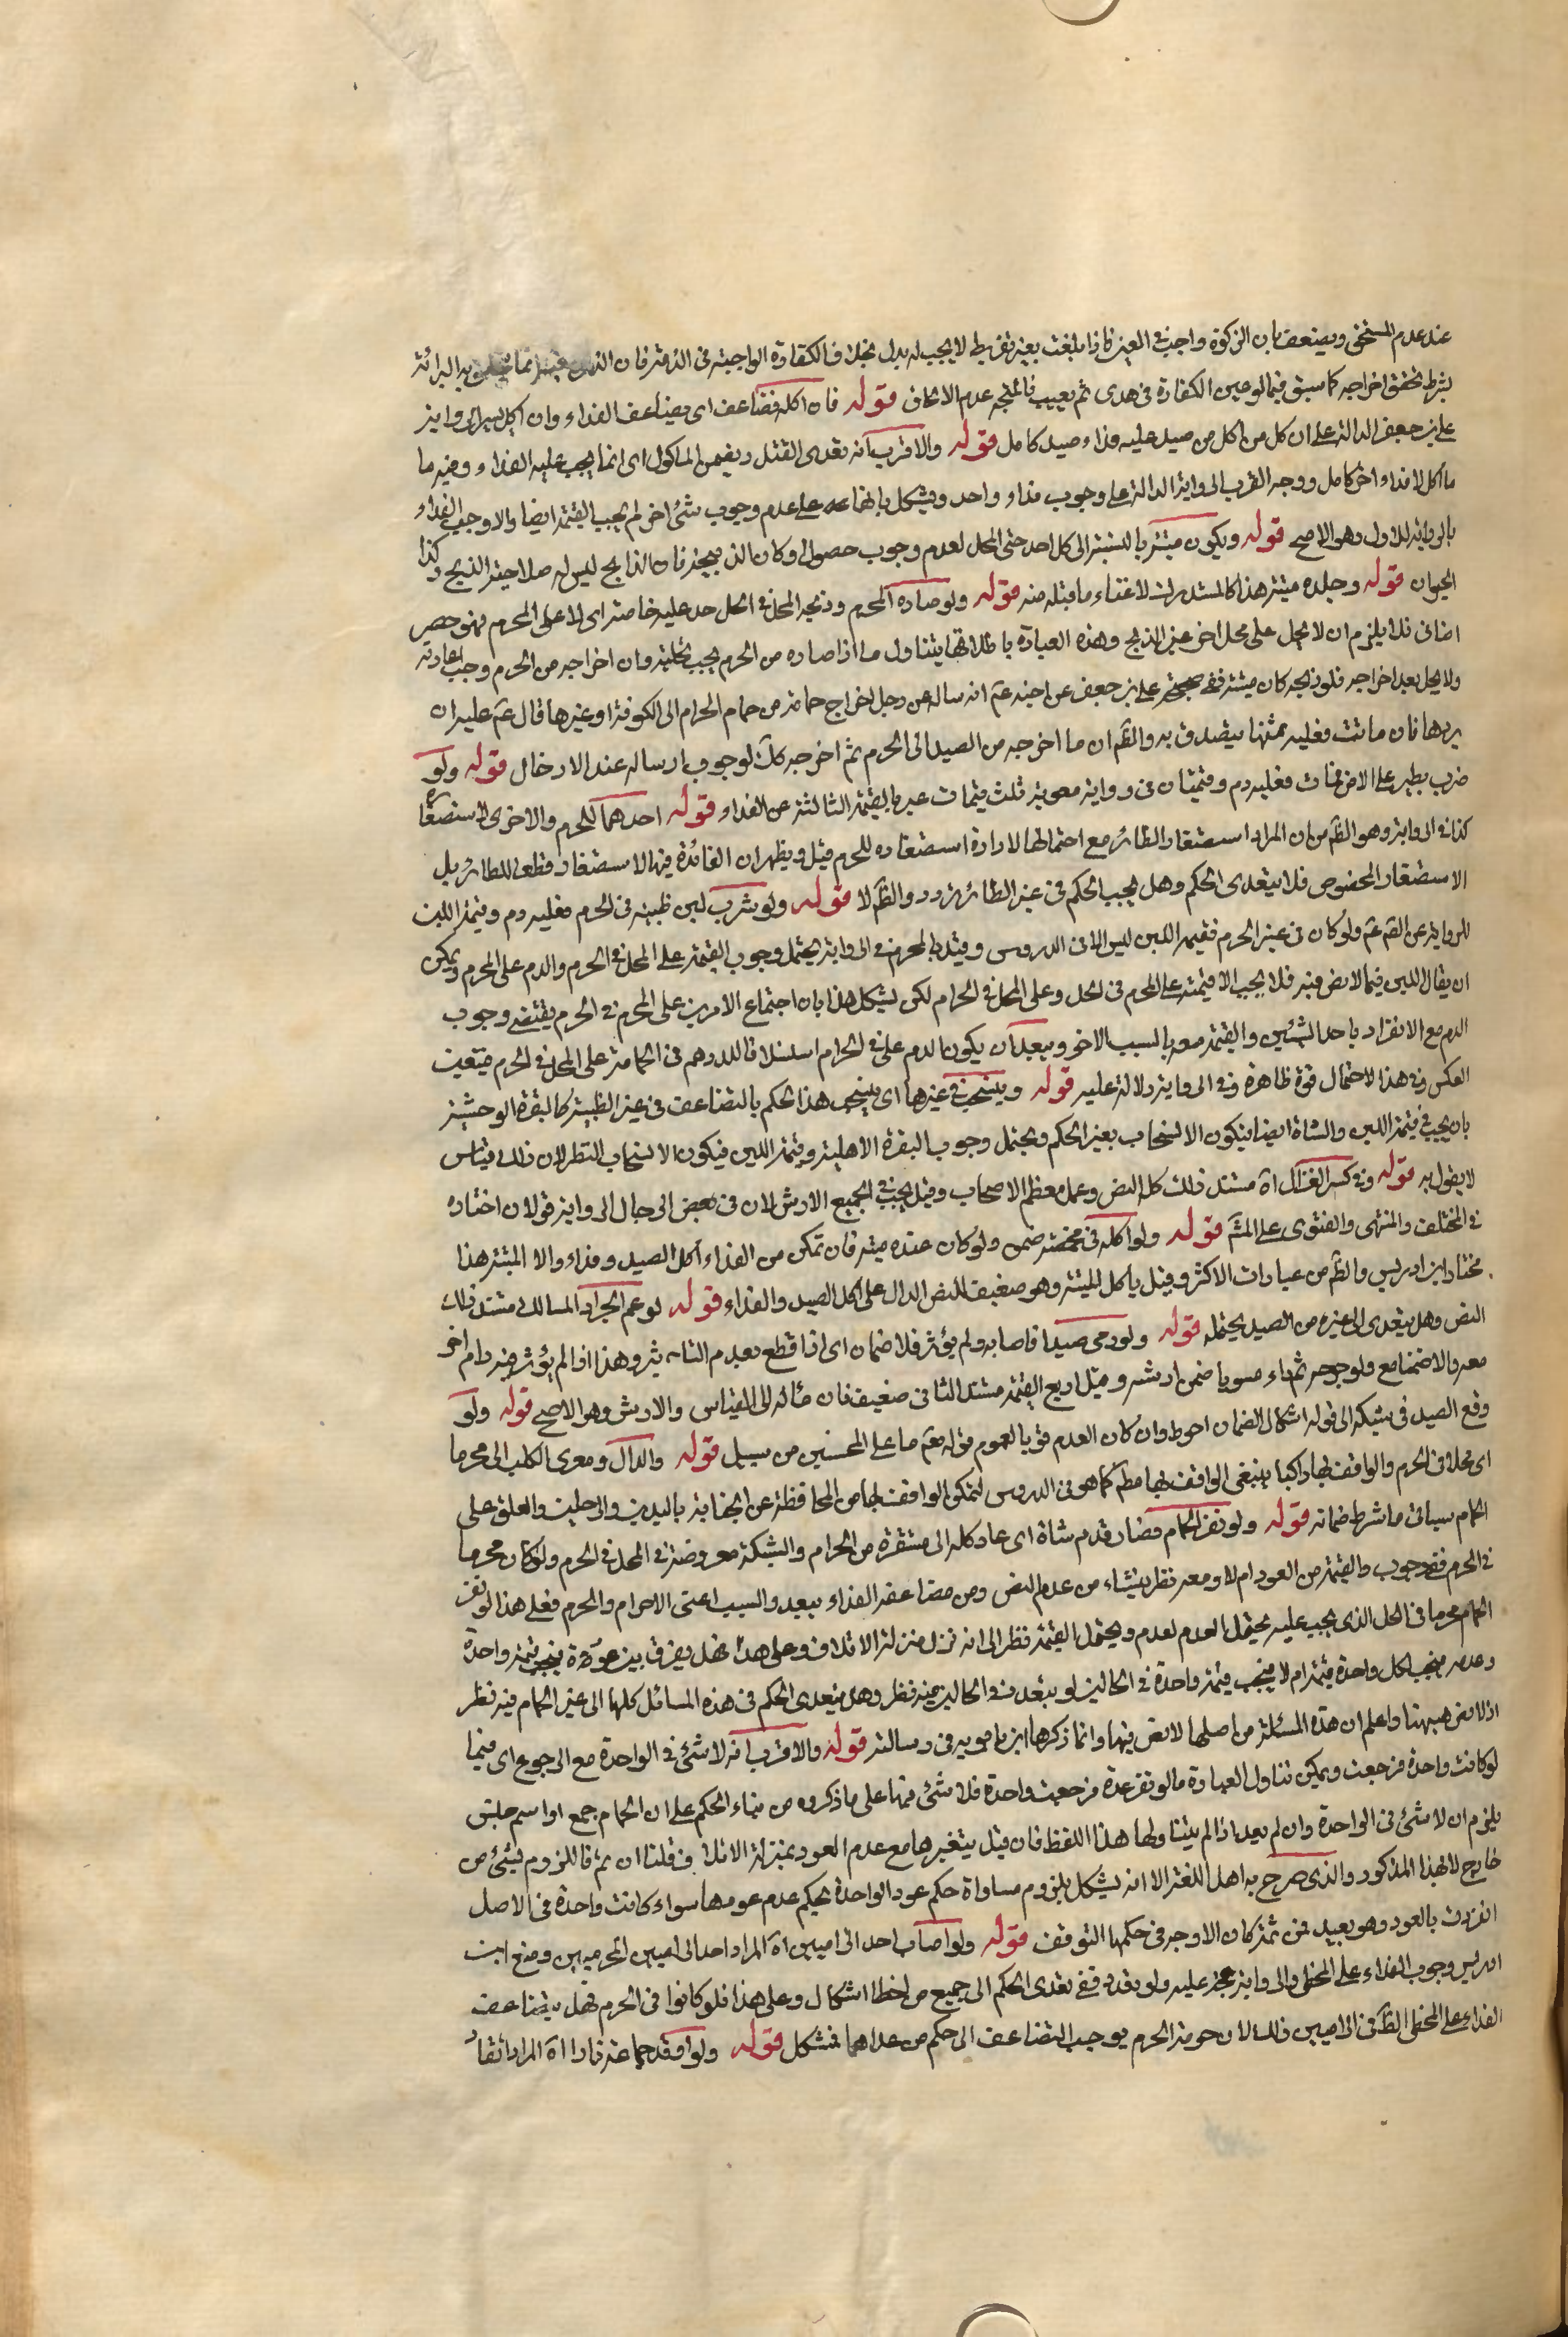 عند عدم المستحق ويضعف بان الزكوة واجبة في العين فاذا تلفت بغير تفريط لا يجب له بدل بخلاف الكفارة الواجبة في الذمة فان البرائة
بشرط تحقق اخراجه كما سبق فيما لو عين الكفارة في هدى ثم تعيب فالمتجه عدم الالحاق قوله فان اكله فضاعف اى يضاعف الفداء وان اكل يسيرا لرواية
على بن جعفر الدالة على ان كل من اكل من صيد عليه فداء صيد كامل قوله والاقرب انه تعدى القتل ويضمن الماكول اى انما يجب عليه الفداء وقيمة ما
ما اكل لا فداء اخر كامل ووجه القرب الرواية الدالة على وجوب فداء واحد ويشكل بانها على عدم وجوب شئ اخر لم يجب القيمة ايضا والا وجب الفداء
بالرواية للاول وهو الاصح قوله ويكون ميتة بالنسبة الى كل احد حتى المحل لعدم وجوب حصول لو كان الذبيحة فان الذابح ليس له صلاحية الذبح وكذا
الحيوان قوله وجلده ميتة هذا كالمستدرك لاغناء ما قبله عنه قوله ولو صاده المحرم وذبحه المحل في الحل حل عليه خاصة اى لا على المحرم فهو حصر
اضافى فلا يلزم ان لا يحل على محل اخر غير الذابح وهذه العبارة باطلاقها يتناول ما اذا صاده من الحرم يجب تخليته وان اخراجه من الحرم وجب اعادته
ولا يحل بعد اخراجه فلو ذبحه كان ميتة ففى صحيحة على بن جعفر عن اخيه عم انه ساله عن رجل اخراج حمامة من حمام الحرام الى الكوفة او غيرها قال عم عليه ان
يردها فان ماتت فعليه ثمنها يتصدق به والظ ان ما اخرجه من الصيد الى الحرم ثم اخرجه كك لوجوب ارساله عند الادخال قوله ولو
ضرب بطير على الارض فمات فعليه دم وقيمتان في رواية معوية ثلث قيمات عبر بالقيمة الثالثة عن الفداء قوله احدهما للحرم والاخرى لاستصغاره
كذا في الرواية وهو الظ من ان المراد استصغار الطائر مع احتمالها لارادة استصغاره للحرم قيل ويظهر ان الفائدة فيها الاستصغار وقطع للطائر بل
الاستصغار المخصوص فلا يتعدى الحكم وهل يجب الحكم في غير الطائر تردد والظ لا قوله ولو شرب لبن ظبية في الحرم فعليه دم وقيمة اللبن
للرواية عن القم عم ولو كان في غير الحرم فقيمة اللبن ليس الا في الدروس وقيل بالحرم في الرواية يحتمل وجوب القيمة على المحل في الحرم والدم على المحرم ويمكن
ان يقال اللبن فيما لا نص فيه فلا يجب الا قيمته على المحرم في الحل وعلى المحل في الحرام لكن يشكل هذا بان اجتماع الامرين على المحرم في الحرم يقتضى وجوب
الدم مع الانفراد باحد الشيئين والقيمة معه بالسبب الاخر ويبعد ان يكون الدم على في الحرام اسلنا لا فا للدرهم في الحمامة على المحل في الحرم فتعين
العكس وفي هذا الاحتمال قوة ظاهرة وفي الرواية دلالة عليه قوله وينسحب في غيرها اى ينسحب هذا الحكم بالتضاعف في غير الظبية كالبقرة الوحشية
بان يجب في قيمة اللبن والشاة ايضا فيكون الانسحاب بغير الحكم ويحتمل وجوب البقرة الاهلية وقيمة اللبن فيكون الانسحاب النظر لان ذلك قياس
لا يقول به قوله وفي كسر الغزال اه مستند ذلك كله النص وعمل معظم الاصحاب وقيل يجب في الجميع الارش لان في بعض الرجال الرواية قولان اختاره
في المختلف والمنتهى والفتوى على المش قوله ولو اكله في مخمصة ضمن ولو كان عنده ميتة فان تمكن من الفداء اكل الصيد وفداه والا الميتة هذا
مختار ابن ادريس والظ من عبارات الاكثر وقيل ياكل الميتة وهو ضعيف للنص الدال على اكل الصيد والفداء قوله لو عم الجراد المسالك مستند ذلك
النص وهل يتعدى الى غيره من الصيد يحتمله قوله ولو رمى صيدا فاصابه ولم يؤثر فلا ضمان اى اذا قطع بعدم التاثير وهذا اذا لم يؤثر فيه رام اخر
معه والا ضمنا مع ولو جرحه ثم راه سويا ضمن ارشه وقيل اربع القيمة مستند الثانى ضعيف فان مأله الى القياس والارش وهو الاصح قوله ولو
وقع الصيد في شبكة الى قوله اشكال الضمان احوط وان كان العدم قويا لعموم قوله تع ما على المحسنين من سبيل قوله والدال ومغرى الكلب الى محرما
اى محلا في الحرم والواقف بها راكبا ينبغى الواقف بها مطم كما هو في الدروس لتمكن الواقف بها من المحافظة عن الجناية باليدين والرجلين والغلق على
الحمام سياتى ما شرط ضمانه قوله ولو نفر الحمام فضار قدم شاة اى عاد كله الى مستقره من الحرام والشبكة معروضة في المحل في الحرم ولو كان محرما
في الحرم ففى وجوب والقيمة من العود ام لا ومعه نظر ينشاء من عدم النص ومن مضاعفة الفداء ببعد والسبب اعنى الاحرام والحرم فعلى هذا لو نفر
الحمام محرما في الحل الذى يجب عليه يحتمل العدم لعدم ويحتمل القيمة نظر الى انه نزل منزلة الاتلاف وعلى هذا فهل يفرق بين عوده فيجب قيمة واحدة
وعدمه فيجب لكل واحدة قيمة ام لا فيجب قيمة واحدة في الحالين لو يتعدد في الحالين فيه نظر وهل يتعدى الحكم في هذه المسائل كلها الى غير الحمام فيه نظر
اذ لا نص ههنا واعلم ان هذه المسئلة من اصلها لا نص فيها وانما ذكرها ابن بابويه في رسالته قوله والاقرب انه لا شئ في الواحدة مع الرجوع اى فيما
لو كانت واحدة فرجعت ويمكن تناول العبارة ما لو نفر عدة فرجعت واحدة فلا شئ فيها على ما ذكروه من بناء الحكم على ان الحمام جمع او اسم جنس
يلزم ان لا شئ في الواحدة وان لم يعد اذا لم يتناولها هذا اللفظ فان قيل ينفيرها مع عدم العود بمنزلة الاتلاف قلنا ان ثم فاللزوم بشئ من
خارج لا بهذا المذكور والذى صرح به اهل اللغة الا انه يشكل بلزوم مساواة حكم عود الواحدة بحكم عدم عودها سواء كانت واحدة في الاصل
انفردت بالعود وهو بعيد فمن ثمة كان الاوجه في حكمها التوقف قوله ولو اصاب احد الراميين اه المراد احد الراميين المحرمين ومنع ابن
ادريس وجوب الفداء على المخطى والرواية حجة عليه ولو تعدد ففى تعدى الحكم الى جميع من اخطا اشكال وعلى هذا فلو كانوا في الحرم فهل يتضاعف
الفداء على المخطى الظ في الراميين ذلك لان حرمة الحرم يوجب التضاعف الى حكم من عداهما فمشكل قوله ولو اوقد جماعة نارا اه المراد ايقاد